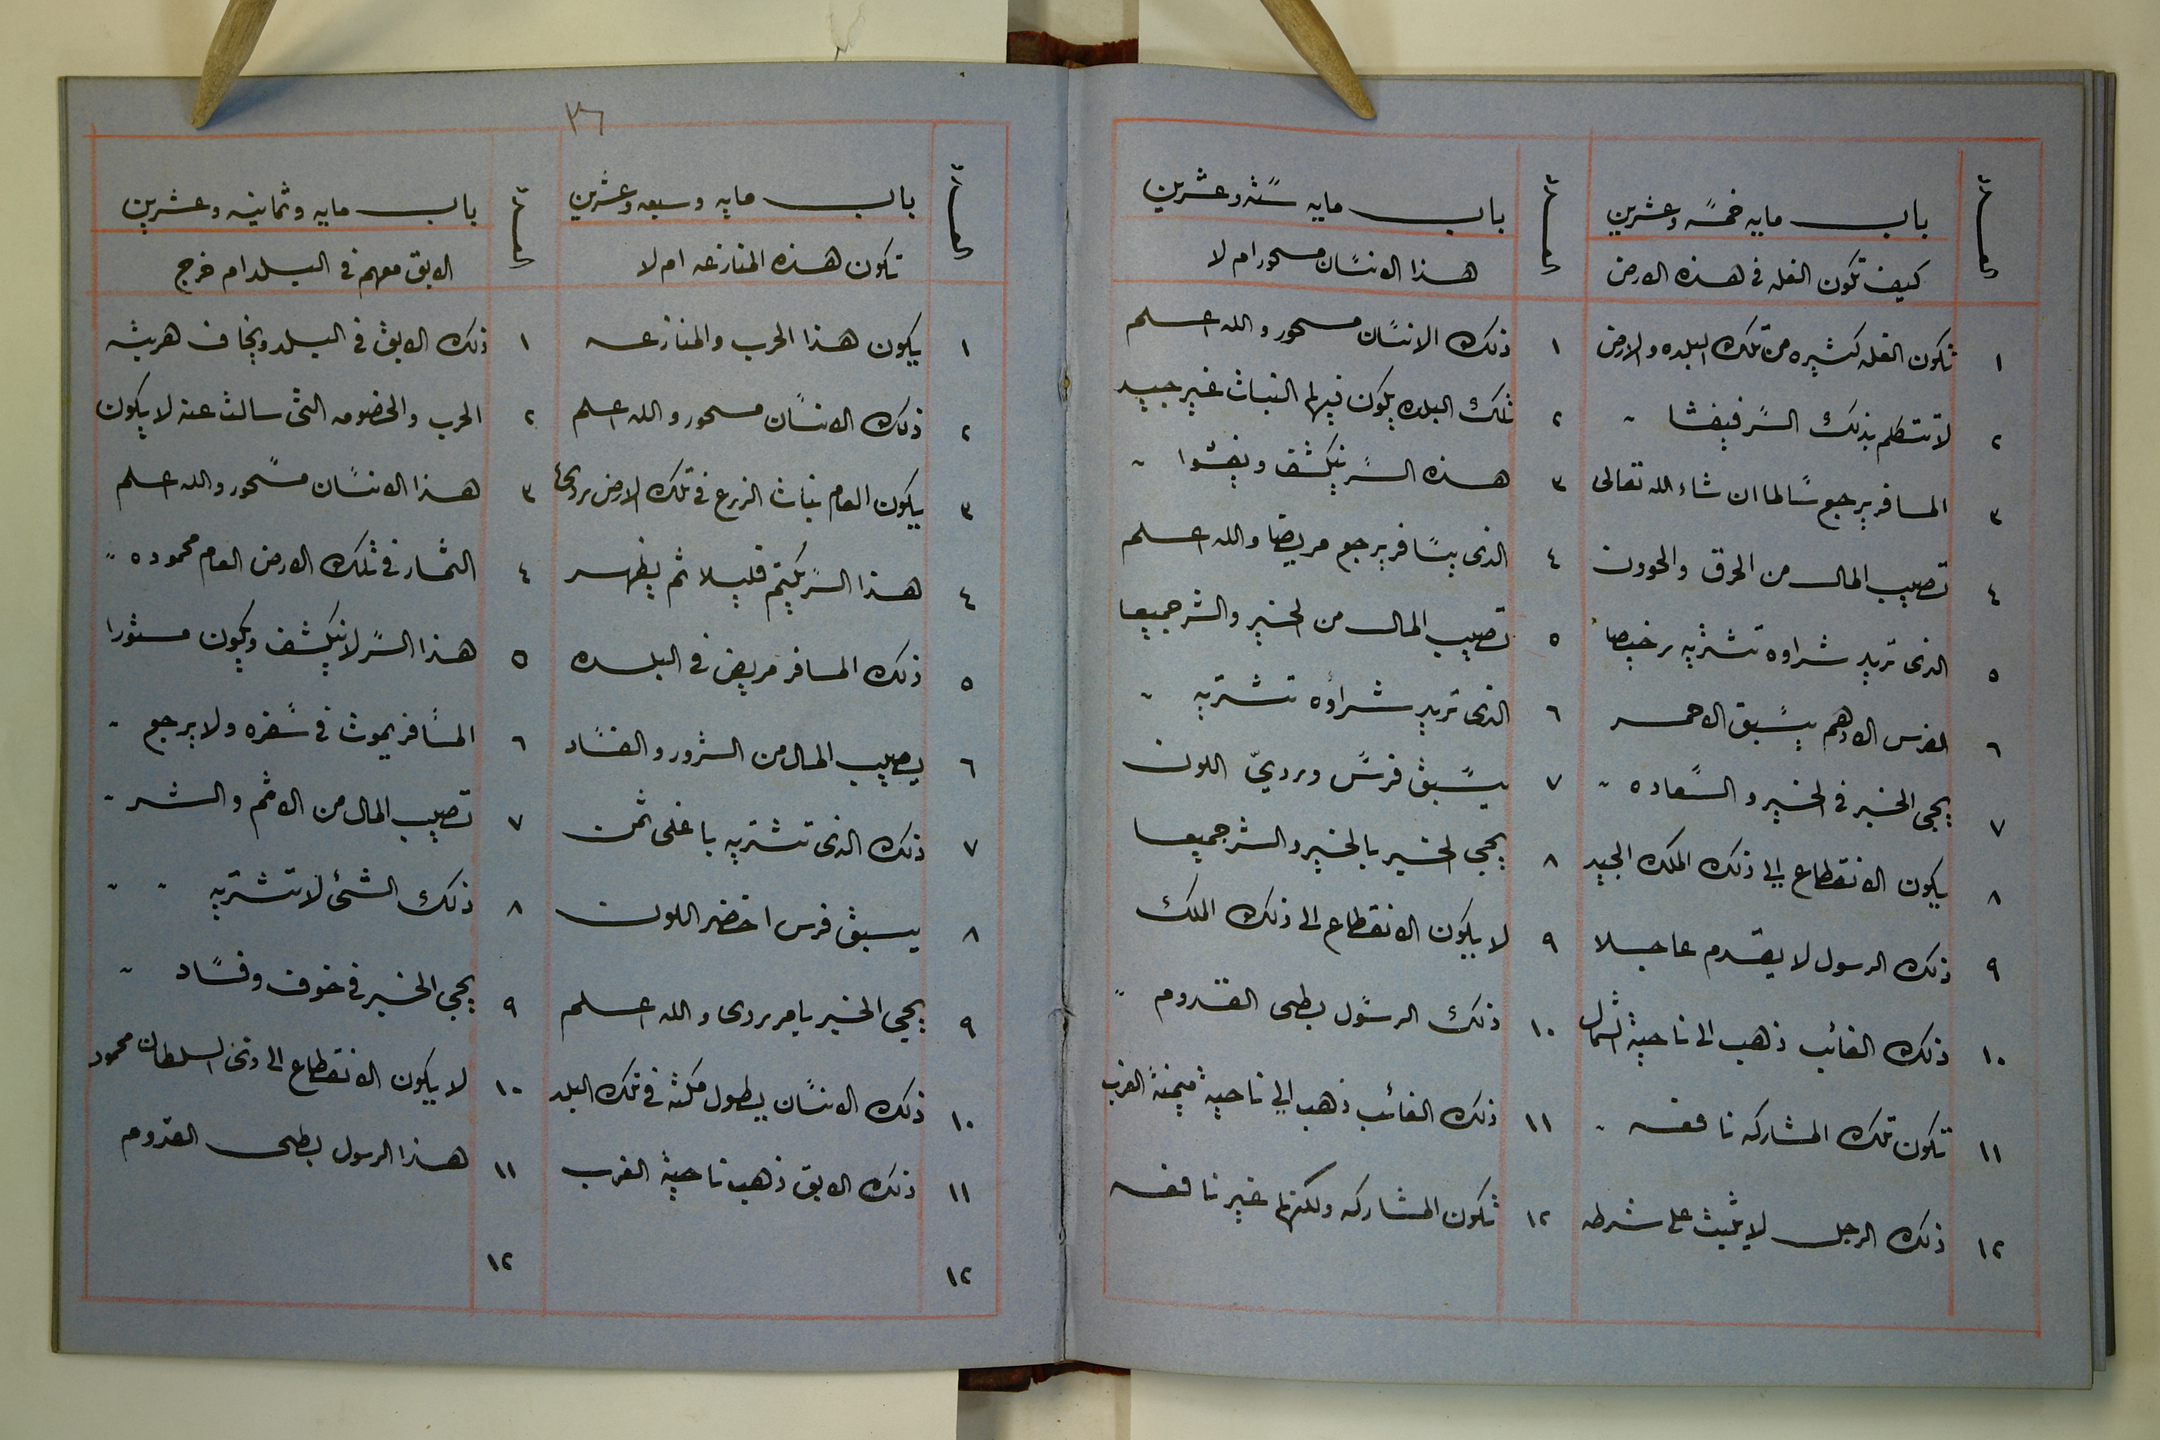 باب مايه خمسه وعشرين
كيف تكون الغله فى هذه الارض
١ تكون الغله كثيره من تلك البلده والارض
٢ لا تتكلم بذلك السر فيفشا
٣ المسافر يرجع سالما ان شاء الله تعالى
٤ تصيب المال من الحرق والحوون
٥ الذى تريد شراوه تشتريه رخيصا
٦ الفرس الادهم يسبق الاحمر
٧ يجى الخبر فى الخير والسعاده
٨ يكون الانقطاع الى ذلك الملك الجيد
٩ ذلك الرسول لا يقدم عاجلا
١٠ ذلك الغائب ذهب الى ناحية الشمال
١١ تكون تلك المشاركه نافعه
١٢ ذلك الرجل لا يثبت على شرطه
باب مايه سته وعشرين
هذا الانسان مسحور ام لا
١ ذلك الانسان مسحور والله اعلم
٢ تلك البلده يكون فيها النبات غير جيد
٣ هذه السر ينكشف ويفشوا
٤ الذى يسافر يرجع مريضا والله اعلم
٥ تصيب المال من الخير والشر جميعا
٦ الذى تريد شراؤه تشتريه
٧ يسبق فرس وردىّ اللون
٨ يجي الخبر بالخير والشر جميعا
٩ لا يكون الانقطاع الى ذلك الملك
١٠ ذلك الرسول بطى القدوم
١١ ذلك الغائب ذهب الى ناحية ميمنة الغرب
١٢ تكون المشاركه ولكنها غير نافعه
٢٦
باب مايه وسبعه وعشرين
تكون هذه المنازعه ام لا
١ يكون هذا الحرب والمنازعه
٢ ذلك الانسان مسحور والله اعلم
٣ يكون العام نبات الزرع فى تلك الارض
٤ هذا السر يكتم قليلا ثم يظهر
٥ ذلك المسافر مريض فى البلده
٦ يصيب المال من الشرور والفساد
٧ ذلك الذى تشتريه باغلى ثمن
٨ يسبق فرس اخضر اللون
٩ يجي الخبر بامر ردى والله اعلم
١٠ ذلك الانسان يطول مكثه فى تلك البلد
١١ ذلك الابق ذهب ناحية الغرب
١٢
باب مايه وثمانيه وعشرين
الابق معهم فى البلد ام خرج
١ ذلك الابق فى البلد ويخاف هربته
٢ الحرب والخصومه التى سالت عنه لا يكون
٣ هذا الانسان مسحور والله اعلم
٤ الثمار فى تلك الارض العام محموده
٥ هذا السر لا ينكشف ويكون مستورا
٦ المسافر يموت فى سفره ولا يرجع
٧ تصيب المال من الاثم والشر
٨ ذلك الشئ لا تشتريه
٩ يجي الخبر فى خوف وفساد
١٠ لا يكون الانقطاع الى السلطان محمود
١١ هذا الرسول بطى القدوم
١٢